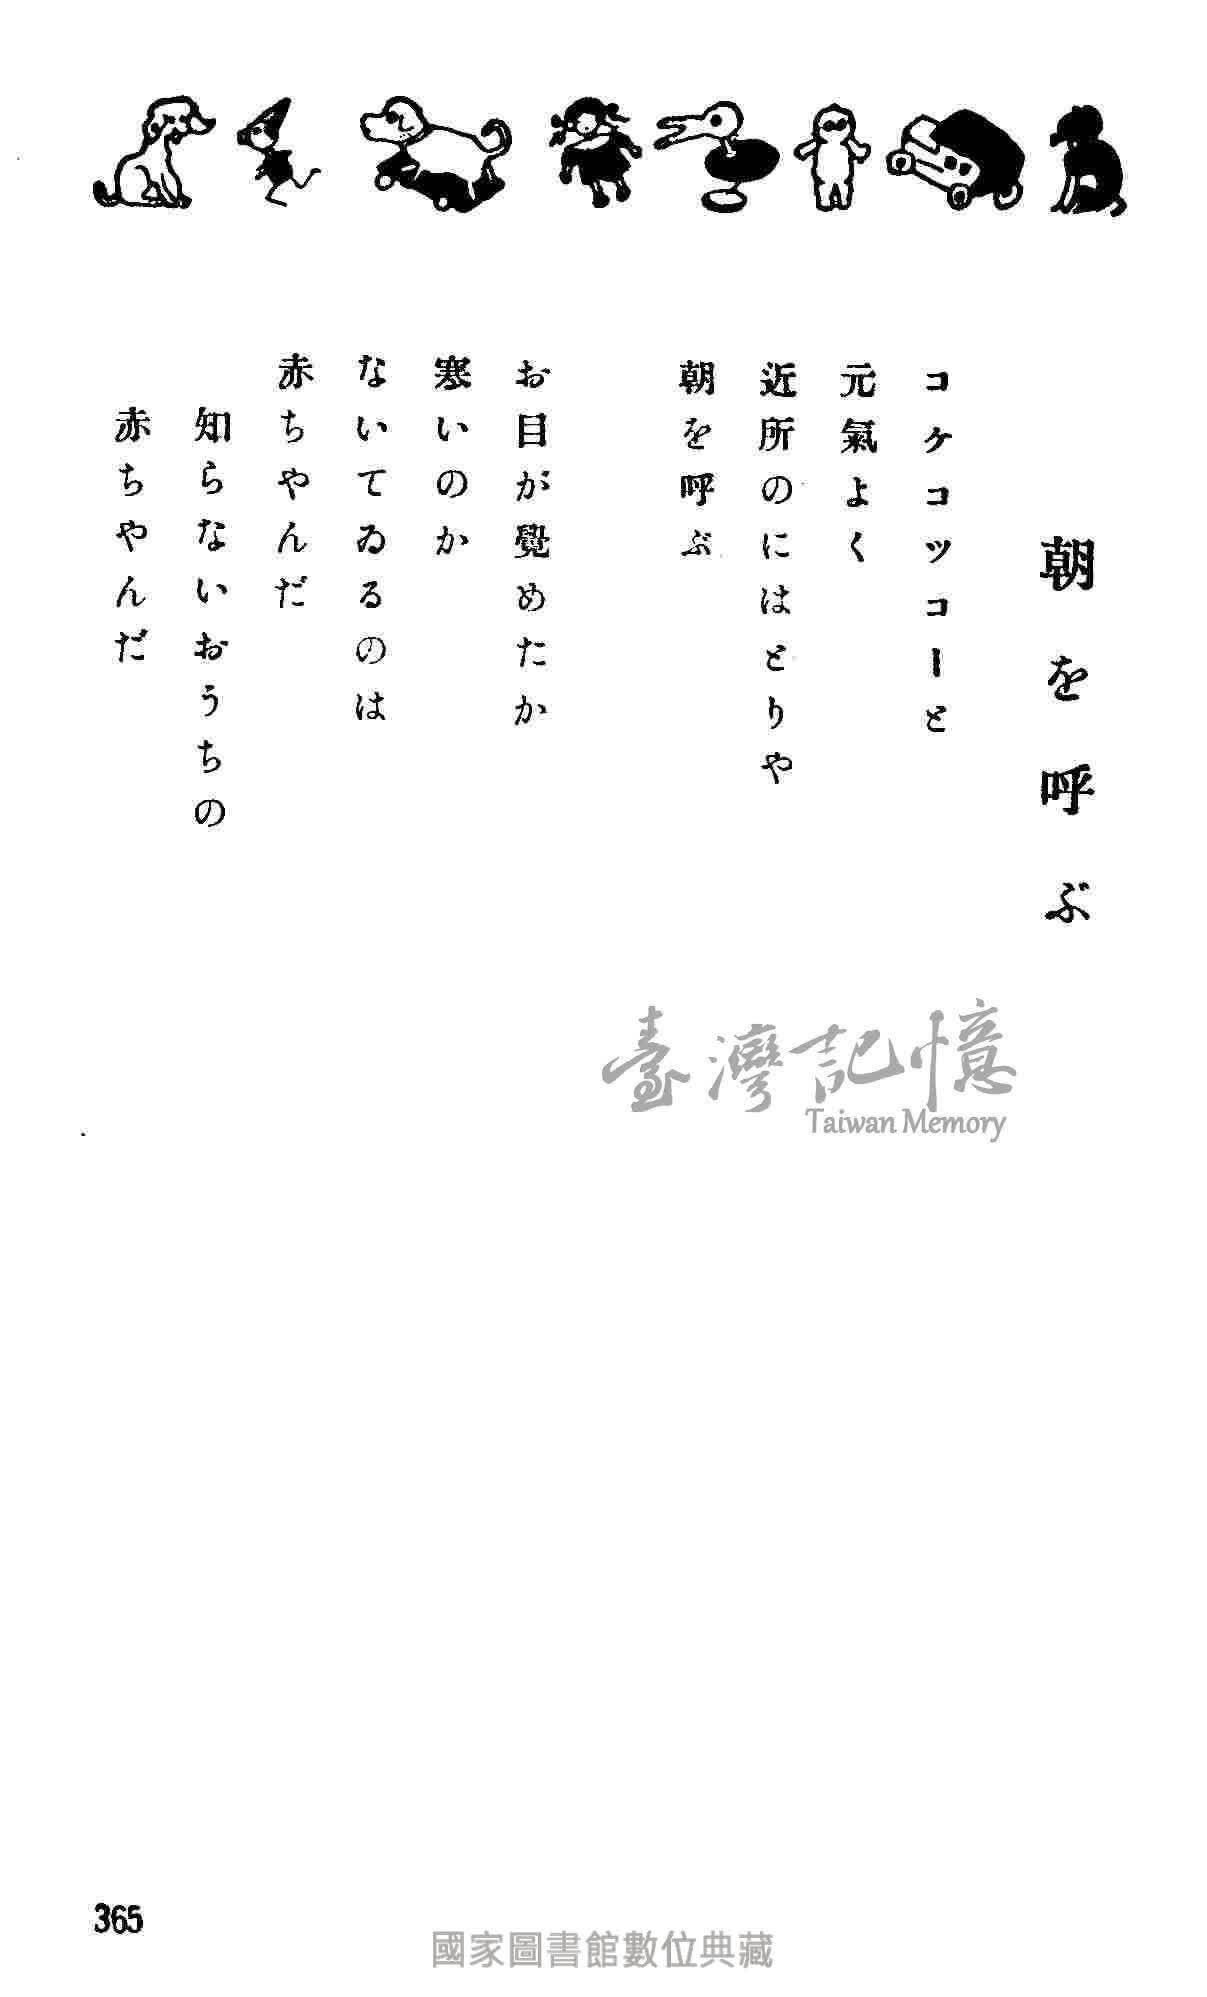 朝を呼ぶ
コケコツコーと
元氣よく
近所のにはとりや
朝を呼ぶ
お目が覺めたか
寒いのか
ないてゐるのは
赤ちやんだ
知らないおうちの
赤ちやんだ
臺灣記憶
Taiwan Memory
365
國家圖書館數位典藏